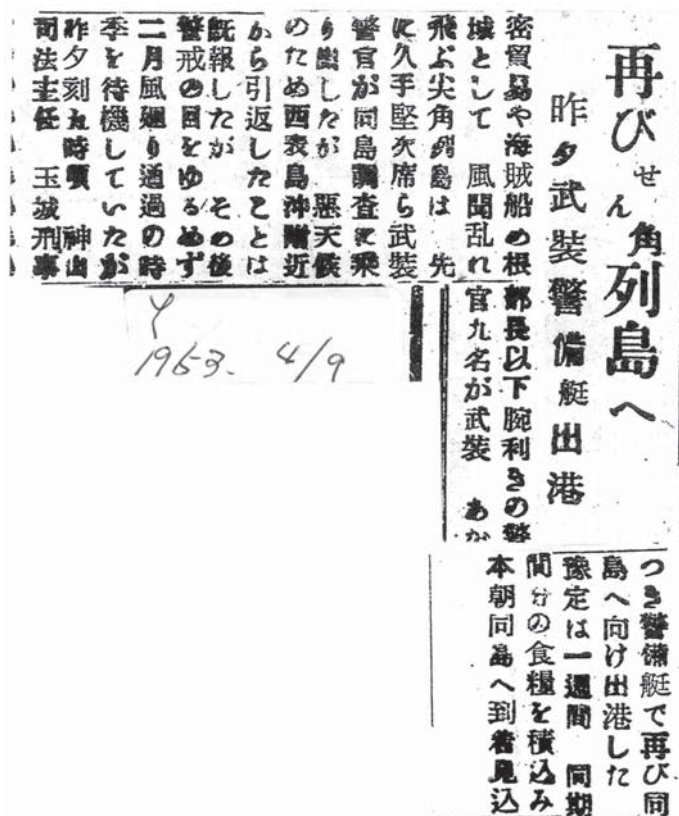 再びせん角列島へ
昨夕武装警備艇出港
密貿易や海賊船の根
城として 風聞乱れ
飛ぶ尖角列島は 先
に久手堅次席ら武装
警官が同島調査に乗
り出したが 悪天候
のため西表島沖附近
から引返したことは
既報したが その後
警戒の目をゆるめず
二月風廻り通過の時
季を待機していたが
昨夕刻九時頃 神山
司法主任 玉城刑事
部長以下腕利きの警
官九名が武装 あか
つき警備艇で再び同
島へ向け出港した
豫定は一週間 同期
間分の食糧を積込み
本朝同島へ到着見込
Y
1953. 4/9